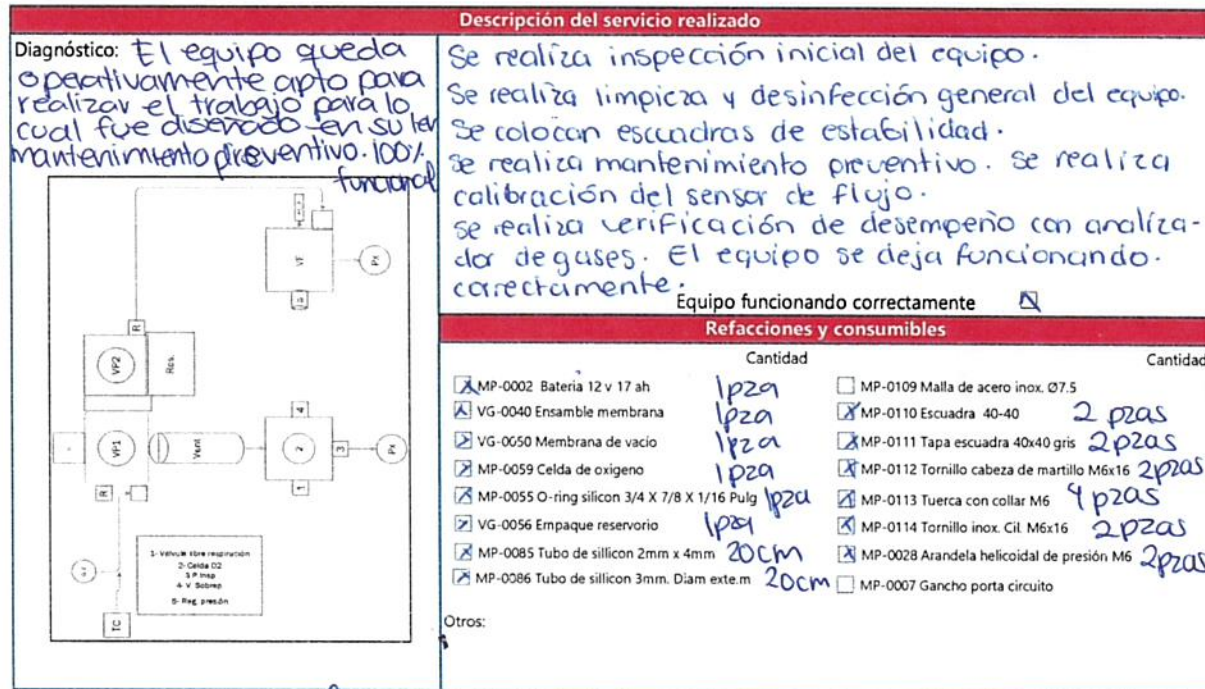 Descripción del servicio realizado
Diagnóstico: El equipo queda
operativamente apto para
realizar el trabajo para lo
cual fue diseñado en su 1er
mantenimiento preventivo. 100%
funcional
VF
Px
5
R
VP2
Res.
VP1
Vent
4
2
3
1
Px
R
TC
1- Valvule libre respiración
2- Celda O2
3 P Insp
4- V. Sobrep
5- Reg. presón
Se realiza inspección inicial del equipo.
Se realiza limpieza y desinfección general del equipo.
Se colocan escuadras de estabilidad.
Se realiza mantenimiento preventivo. Se realiza
calibración del sensor de flujo.
Se realiza verificación de desempeño con analiza-
dor de gases. El equipo se deja funcionando.
correctamente.
Equipo funcionando correctamente
Refacciones y consumibles
Cantidad
MP-0002 Bateria 12 v 17 ah 1pza
VG-0040 Ensamble membrana 1pza
VG-0050 Membrana de vacio 1pza
MP-0059 Celda de oxigeno 1pza
MP-0055 O-ring silicon 3/4 X 7/8 X 1/16 Pulg 1pza
VG-0056 Empaque reservorio 1pza
MP-0085 Tubo de sillicon 2mm x 4mm 20cm
MP-0086 Tubo de sillicon 3mm. Diam exte.m 20cm
Cantidad
MP-0109 Malla de acero inox. Ø7.5
MP-0110 Escuadra 40-40 2 pzas
MP-0111 Tapa escuadra 40x40 gris 2pzas
MP-0112 Tornillo cabeza de martillo M6x16 2pzas
MP-0113 Tuerca con collar M6 4 pzas
MP-0114 Tornillo inox. Cil. M6x16 2pzas
MP-0028 Arandela helicoidal de presión M6 2pzas
MP-0007 Gancho porta circuito
Otros: